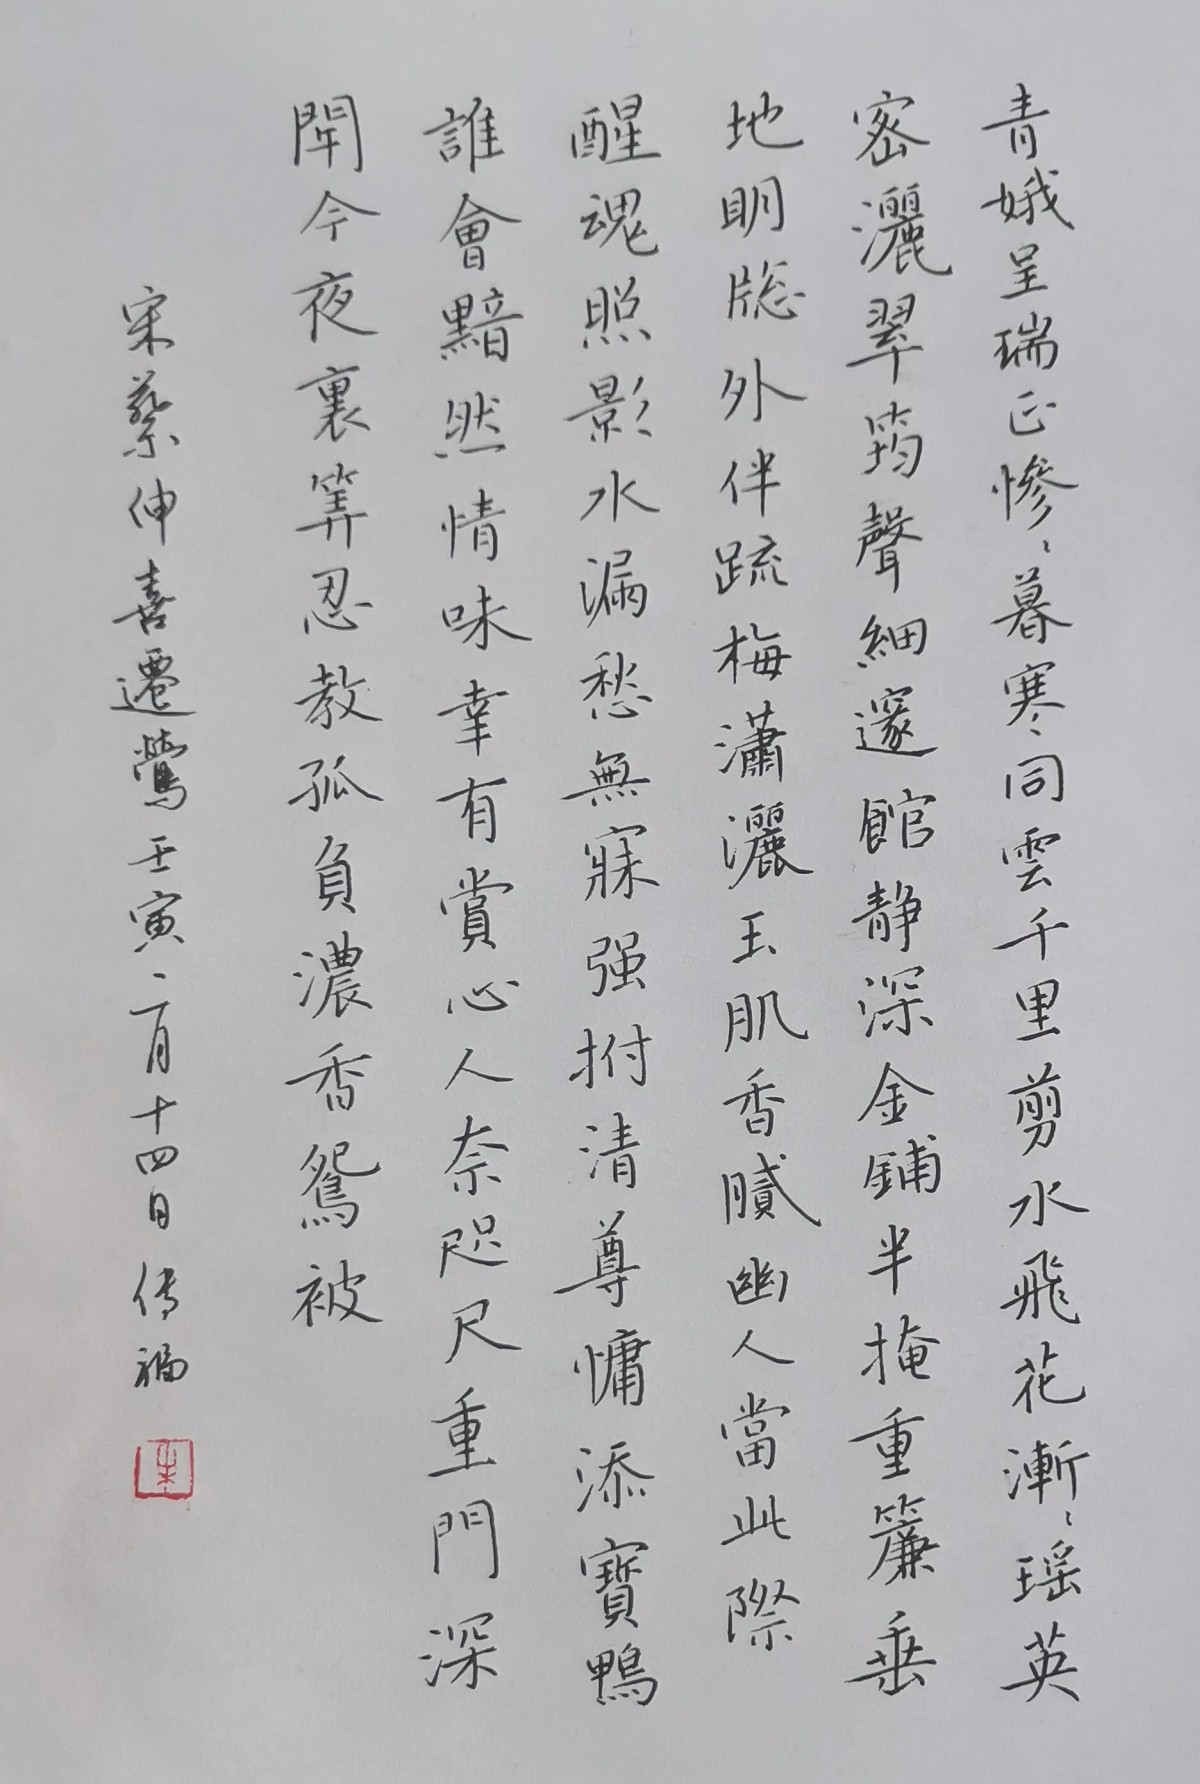 青娥呈瑞正慘慘暮寒同雲千里剪水飛花漸漸瑶英
密灑翠筠聲細邃館静深金鋪半掩重簾垂
地明牕外伴疏梅瀟灑玉肌香膩幽人當此際
醒魂照影水漏愁無寐强拊清尊慵添寶鴨
誰會黯然情味幸有賞心人奈咫尺重門深
閈今夜裏筭忍教孤負濃香鴛被
宋蔡伸喜遷鶯壬寅二月十四日传福